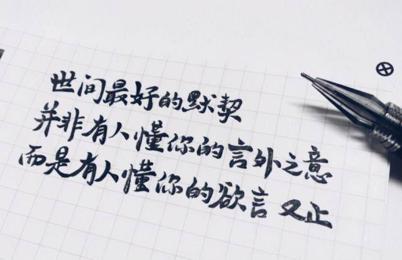 世间最好的默契
并非有人懂你的言外之意
而是有人懂你的欲言又止